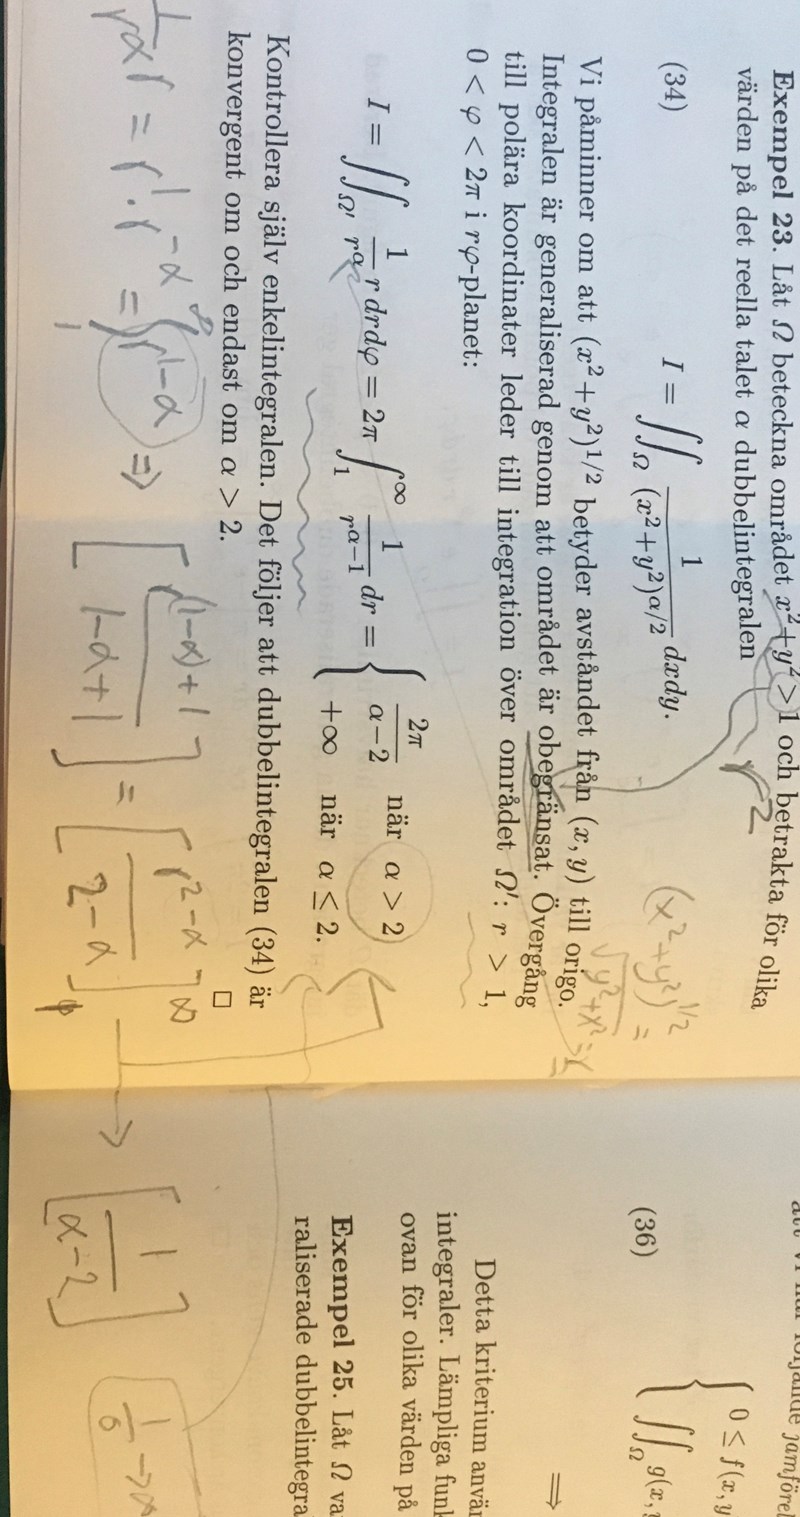 Exempel 23. Låt Ω beteckna området x² + y² > 1 och betrakta för olika
värden på det reella talet α dubbelintegralen
r²
(34) I = ∬_Ω 1/(x² + y²)^{α/2} dxdy.
(x² + y²)^{1/2} =
√(y² + x²) = r
Vi påminner om att (x² + y²)^{1/2} betyder avståndet från (x, y) till origo.
Integralen är generaliserad genom att området är obegränsat. Övergång
till polära koordinater leder till integration över området Ω′: r > 1,
0 < φ < 2π i rφ-planet:
I = ∬_{Ω′} 1/r^α r drdφ = 2π ∫_1^∞ 1/r^{α−1} dr = { 2π/(α−2) när α > 2
+∞ när α ≤ 2.
Kontrollera själv enkelintegralen. Det följer att dubbelintegralen (34) är
konvergent om och endast om α > 2. □
1/r^α r = r^1 · r^{−α} = ∫_1^∞ r^{1−α} ⇒ [r^{(1−α)+1}/(1−α+1)] = [r^{2−α}/(2−α)]_1^∞ → [1/(α−2)]
(36) { 0 ≤ f(x, y
∬_Ω g(x,
⟹
Detta kriterium
integraler. Lämpliga
ovan för olika värden på
Exempel 25. Låt Ω
raliserade